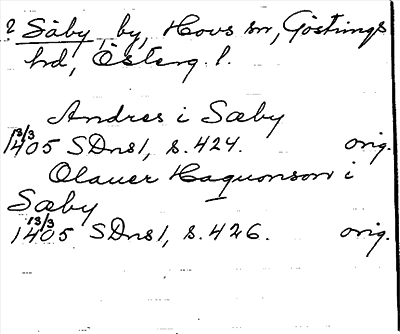 ? Säby, by, Hovs sn, Göstrings
hd, Österg. l.
Andres i Sæby
13/3
1405 SDns1, s. 424. orig.
Olauer Haquonson i
Sæby
13/3
1405 SDns1, s. 426. orig.